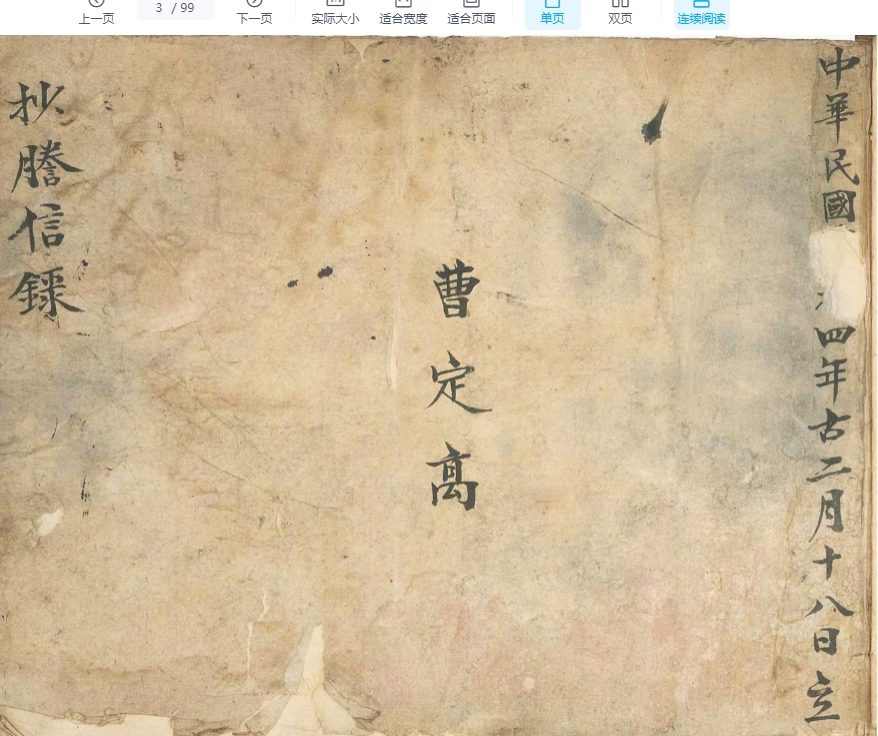 上一页
3 / 99
下一页
实际大小
适合宽度
适合页面
单页
双页
连续阅读
中華民國
四年古二月十八日立
曹定高
抄謄信錄